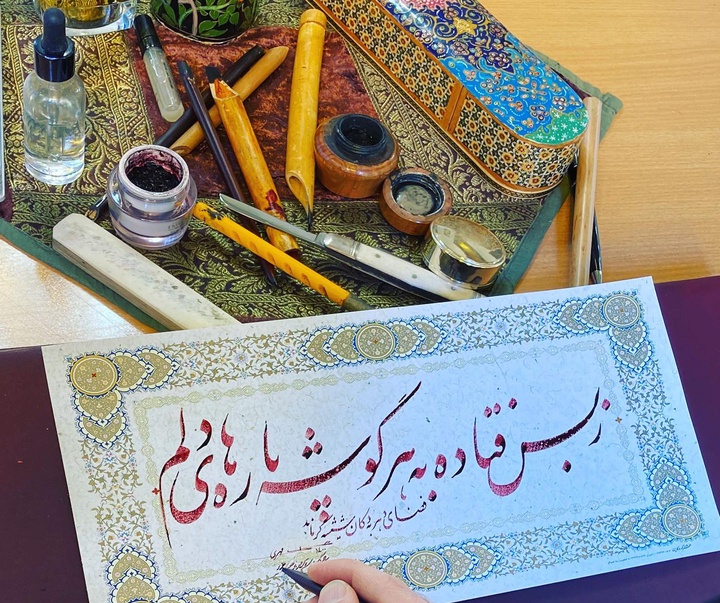 ز بس فتاده به هر گوشه پاره های دلم
فضای دهر به دکان شیشه گر ماند